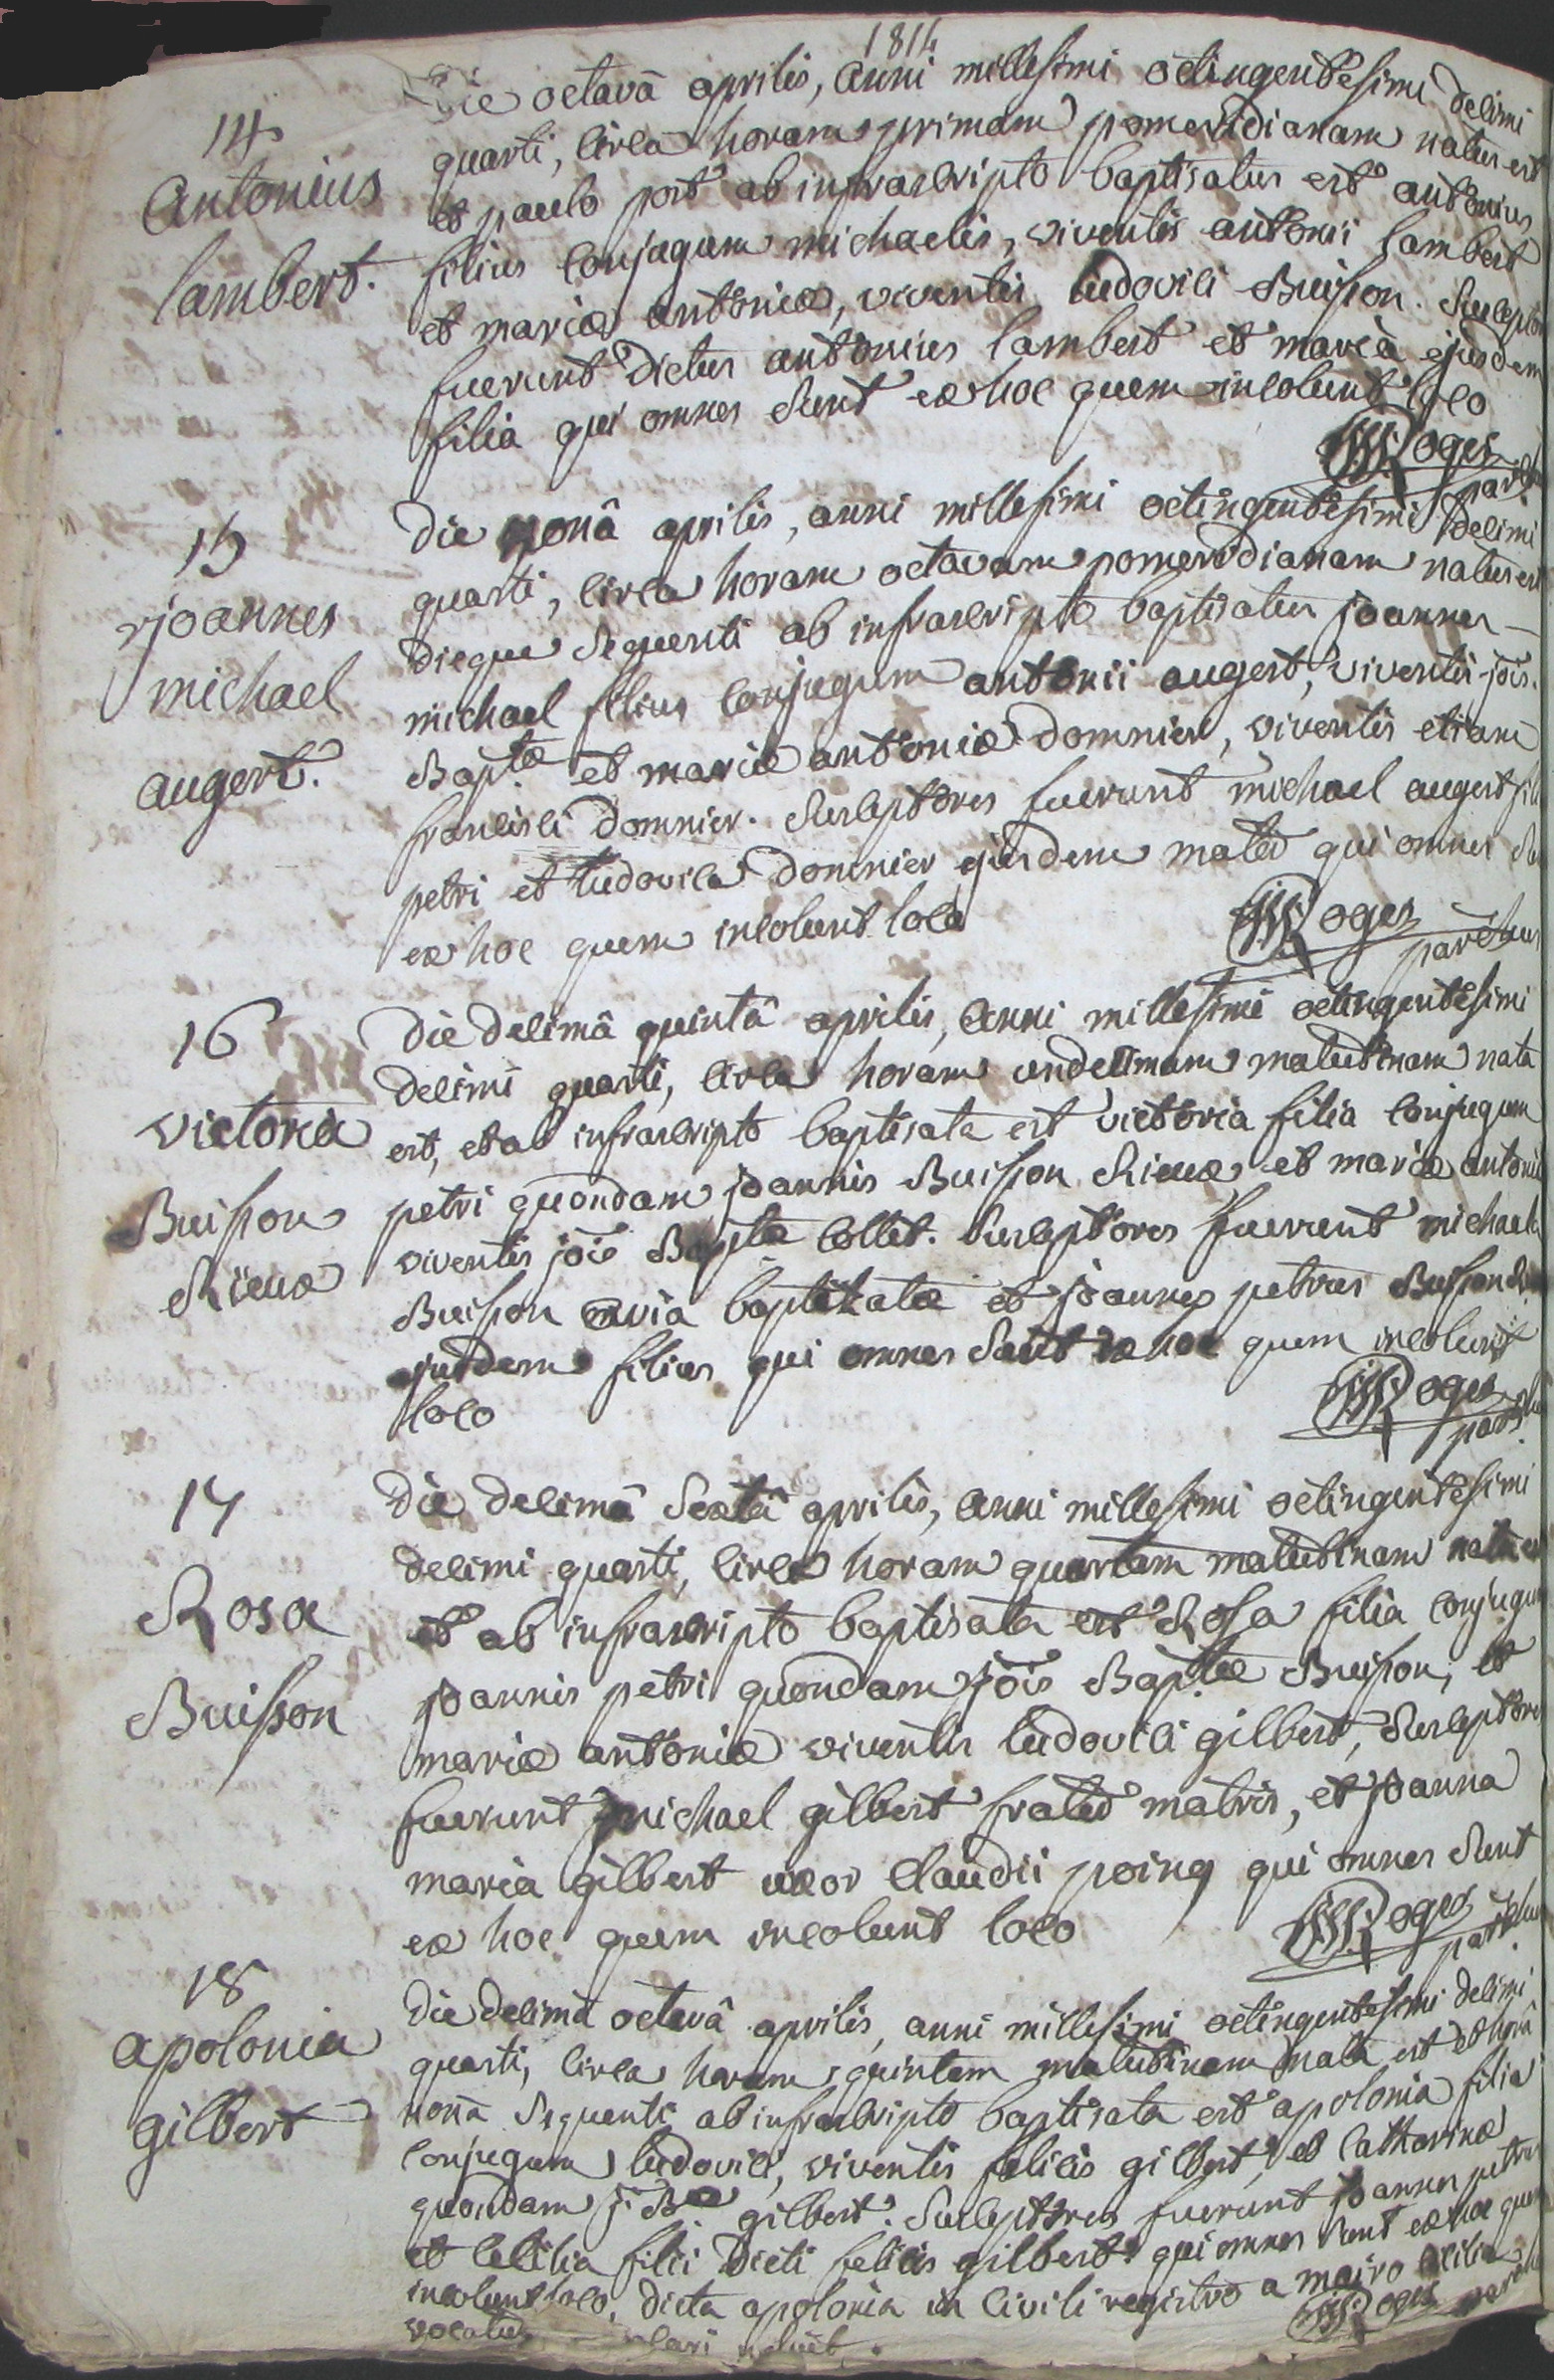 1814
14
Antonius
lambert.
Die octavâ aprilis, anni millesimi octingentesimi decimi
quarti, circa horam primam pomeridianam natus est
et paulo post ab infrascripto baptisatus est antonius
filius conjugum michaelis, viventis antonii lambert
et mariæ antoniæ, viventis ludovici Buisson. Susceptores
fuerunt dictus antonius lambert et maria ejusdem
filia qui omnes sunt ex hoc quem incolunt loco
Roges
15
joannes
michael
augert.
Die nonâ aprilis, anni millesimi octingentesimi decimi
quarti, circa horam octavam pomeridianam natus est
dieque sequenti ab infrascripto baptisatus joannes
michael filius conjugum antonii augert, viventis jois.
Baptæ et mariæ antoniæ domnier, viventis etiam
francisci domnier. Susceptores fuerunt michael augert
petri et ludovica domnier ejusdem mater qui omnes
ex hoc quem incolunt loco
Roges
parochus
16
victoria
Buisson
Rieux
Die decimâ quintâ aprilis, anni millesimi octingentesimi
decimi quarti, circa horam undecimam matutinam nata
est, et ab infrascripto baptisata est victoria filia conjugum
petri quondam joannis Buisson Rieux et mariæ antoniæ
viventis jois Baptæ collet. Susceptores fuerunt michaela
Buisson avia baptizatæ et joannes petrus Buisson
ejusdem filius qui omnes sunt ex hoc quem incolunt
loco
Roges
17
Rosa
Buisson
Die decimâ sextâ aprilis, anni millesimi octingentesimi
decimi quarti, circa horam quartam matutinam nata est
et ab infrascripto baptisata est Rosa filia conjugum
joannis petri quondam jois Baptæ Buisson, et
mariæ antoniæ viventis ludovici gilbert, Susceptores
fuerunt michael gilbert frater matris, et joanna
maria gilbert uxor Claudii poing qui omnes sunt
ex hoc quem incolunt loco
Roges
18
apolonia
gilbert
Die decimâ octavâ aprilis, anni millesimi octingentesimi decimi
quarti, circa horam quintam matutinam nata est et horâ
nonâ sequenti ab infrascripto baptisata est apolonia filia
conjugum ludovici, viventis felicis gilbert, et catharinæ
quondam j. Bæ gilbert. Susceptores fuerunt joannes petrus
et cecilia filii dicti felicis gilbert. qui omnes sunt ex hoc quem
incolunt loco. dicta apolonia in civili registro a mairo cecilia
Roges